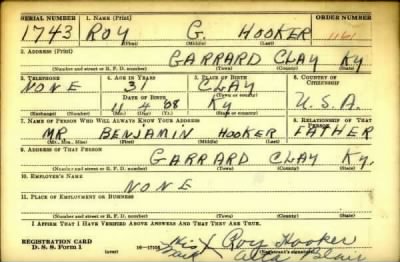 SERIAL NUMBER 1. NAME (Print) ORDER NUMBER
1743 ROY G. HOOKER 1161
(First) (Middle) (Last)
2. ADDRESS (Print)
GARRARD CLAY KY
(Number and street or R. F. D. number) (Town) (County) (State)
3. TELEPHONE 4. AGE IN YEARS 5. PLACE OF BIRTH 6. COUNTRY OF CITIZENSHIP
NONE 31 CLAY
DATE OF BIRTH (Town or county)
11 4 '08 KY U.S.A.
(Exchange) (Number) (Mo.) (Day) (Yr.) (State or country)
7. NAME OF PERSON WHO WILL ALWAYS KNOW YOUR ADDRESS 8. RELATIONSHIP OF THAT PERSON
MR. BENJAMIN HOOKER FATHER
(Mr., Mrs., Miss) (First) (Middle) (Last)
9. ADDRESS OF THAT PERSON
GARRARD CLAY KY.
(Number and street or R. F. D. number) (Town) (County) (State)
10. EMPLOYER'S NAME
NONE
11. PLACE OF EMPLOYMENT OR BUSINESS
(Number and street or R. F. D. number) (Town) (County) (State)
I AFFIRM THAT I HAVE VERIFIED ABOVE ANSWERS AND THAT THEY ARE TRUE.
REGISTRATION CARD his X Roy Hooker
D. S. S. Form 1 mark Blair